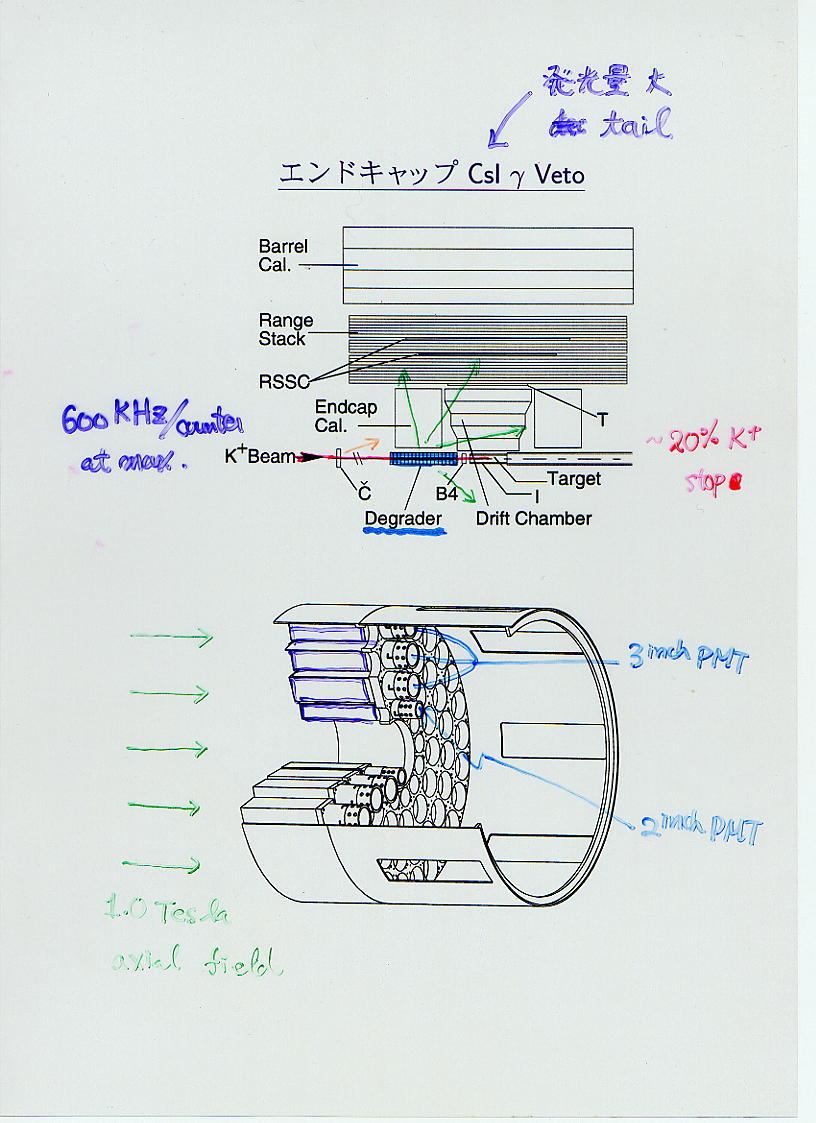 発光量 大
tail
エンドキャップ CsI γ Veto
Barrel
Cal.
Range
Stack
RSSC
Endcap
Cal.
T
600 KHz/counter
at max.
K+Beam
~20% K+
stop
Č
B4
I
Target
Degrader
Drift Chamber
3 inch PMT
2 inch PMT
1.0 Tesla
axial field